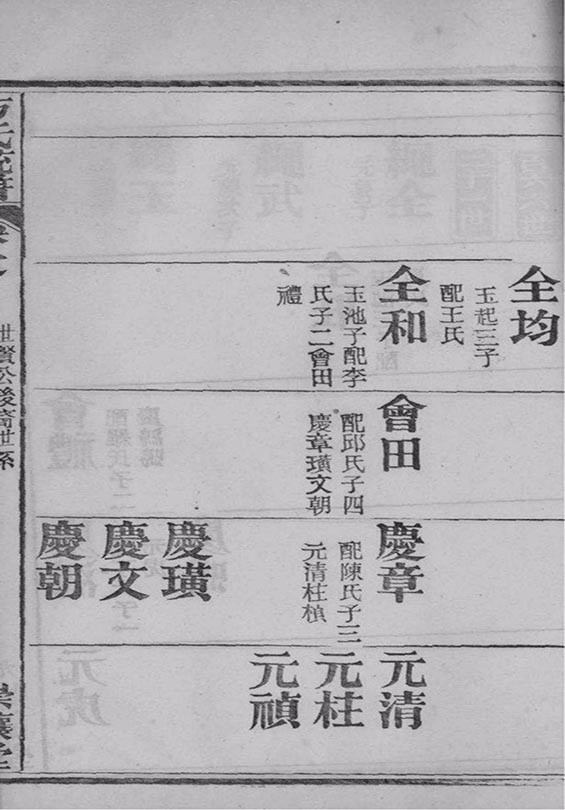 全均
玉起三子
配王氏
全和
玉池子配李
氏子二會田
禮
會田
配邱氏子四
慶章璜文朝
慶章
配陳氏子三
元清柱楨
慶璜
慶文
慶朝
元清
元柱
元禎
世賢公後裔世系